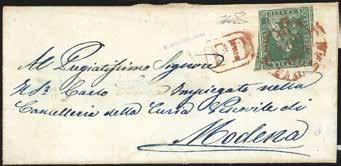 Al Pregiatissimo Signore
Carlo Impiegato nella
Cancelleria della Curia Vescovile di
Modena
PD